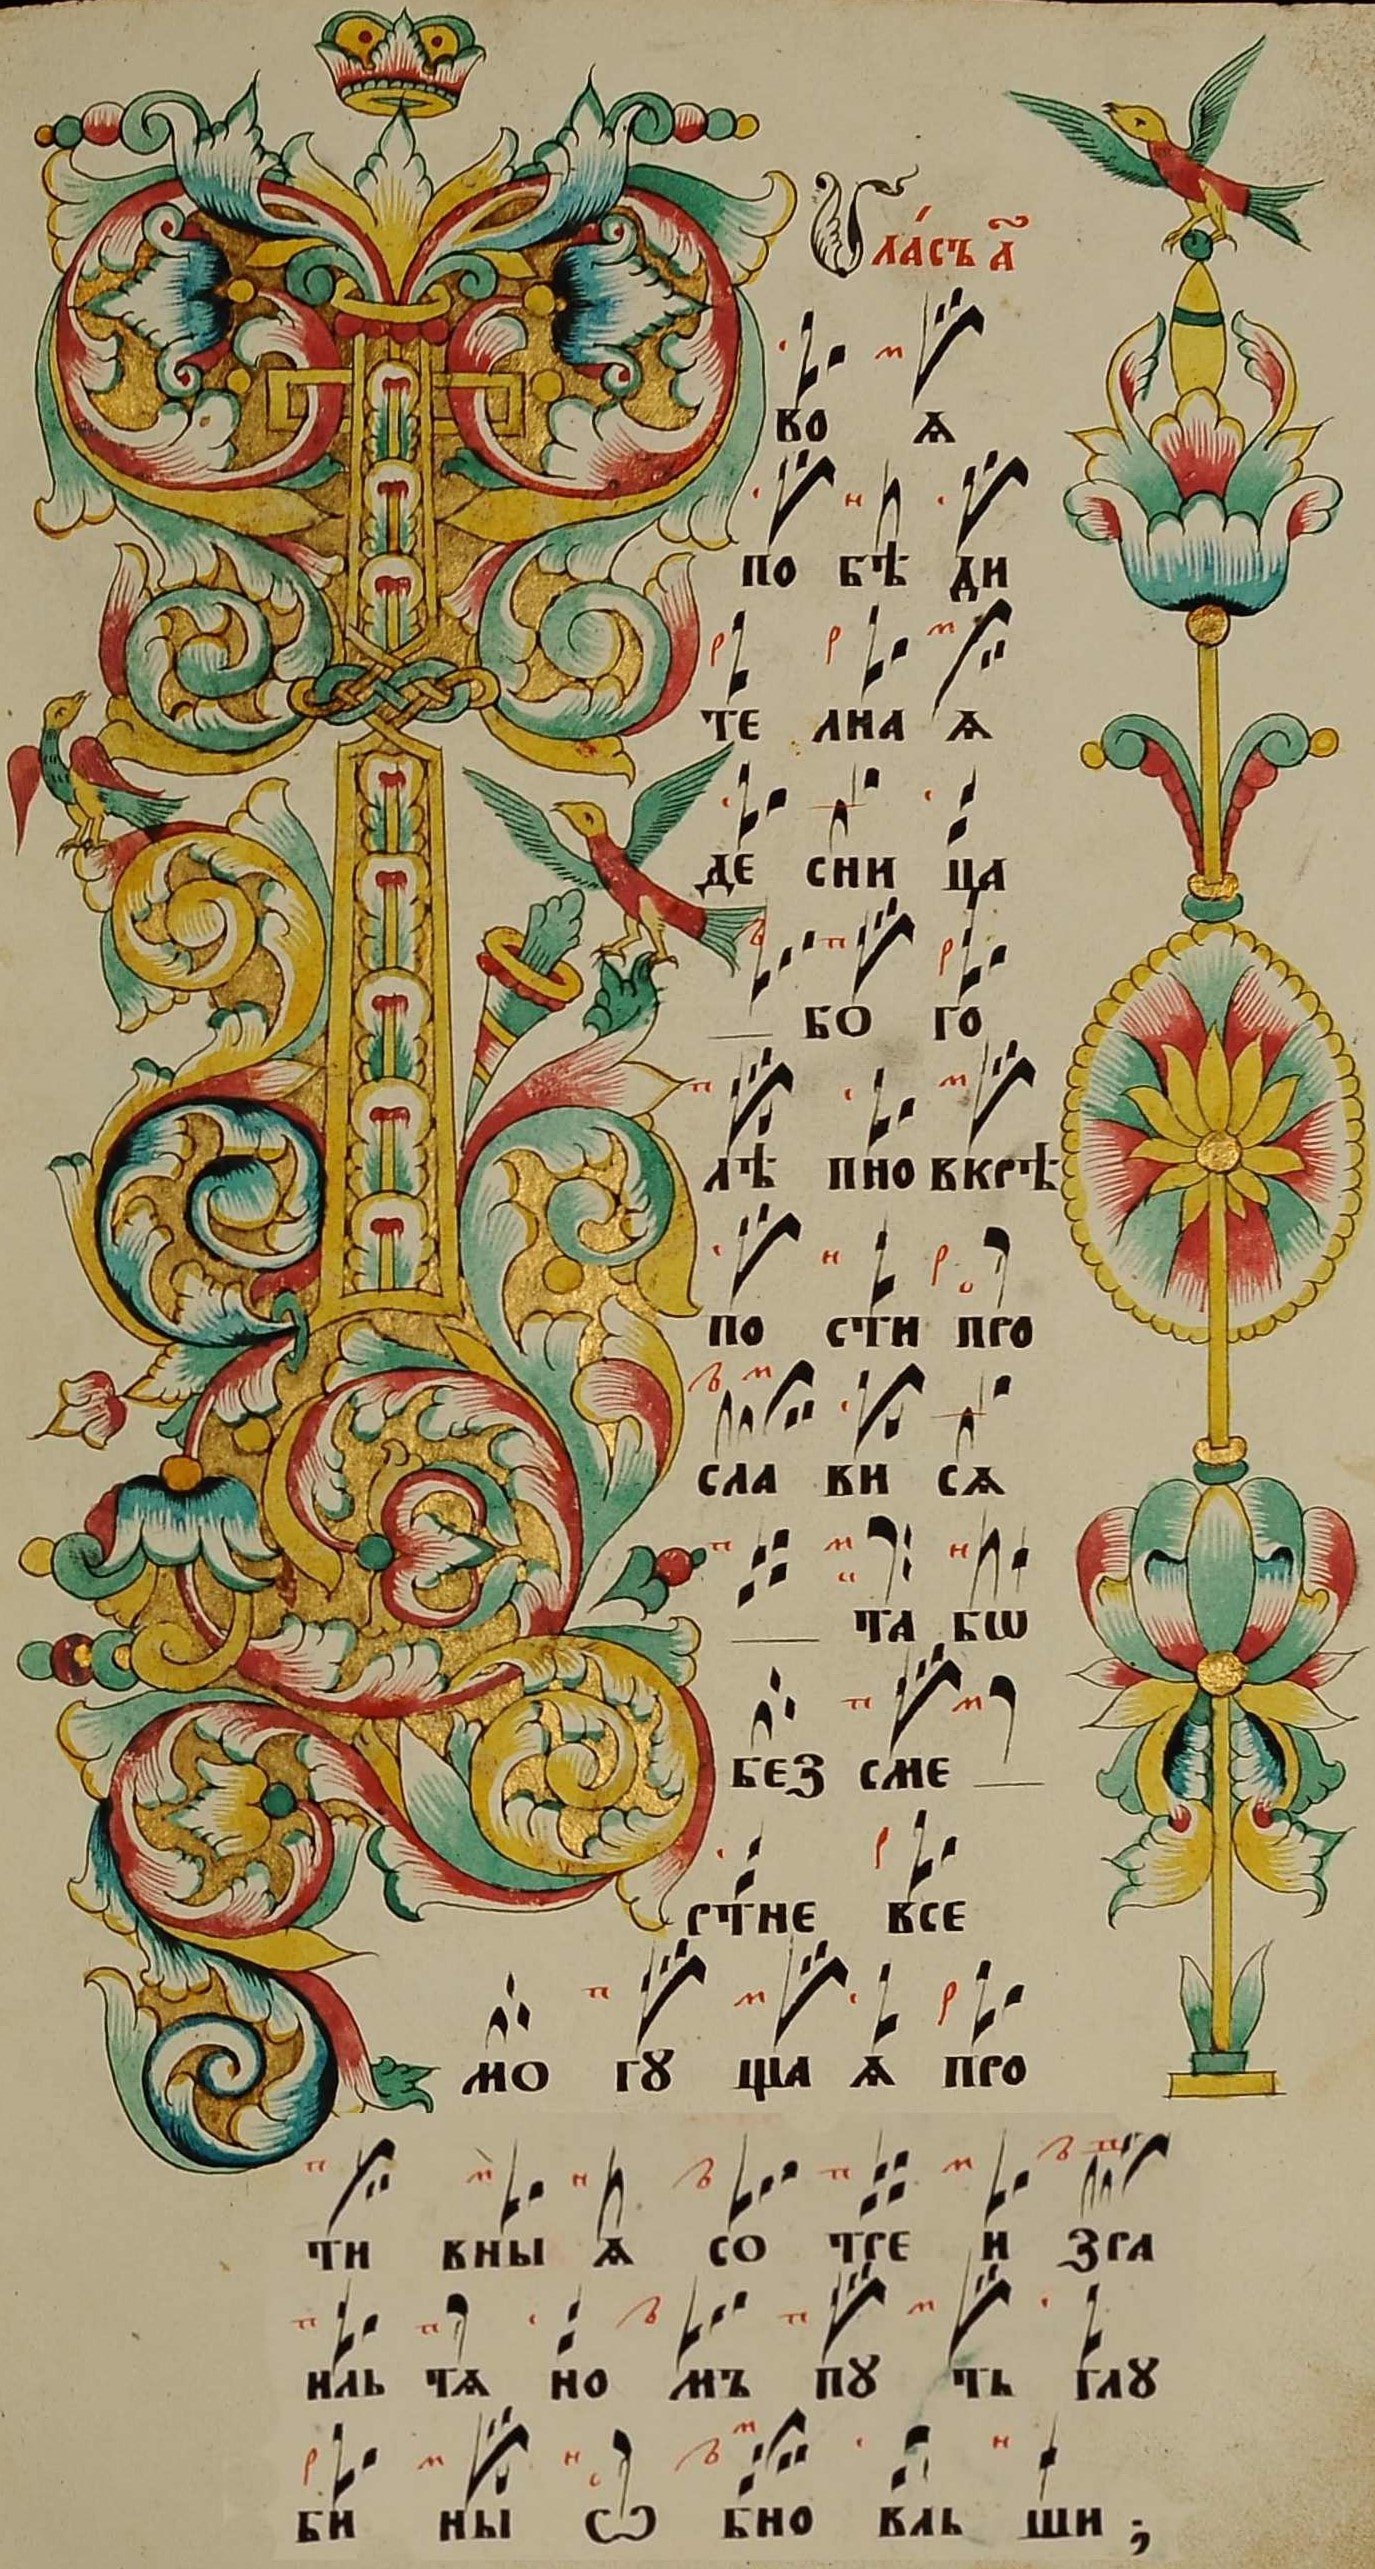 Гла́съ а҃
во ѧ
по бѣ ди
те лна ѧ
де сни ца
бо го
лѣ пно вкрѣ
по сти про
сла ви сѧ
та бѡ
без сме
ртне все
мо гꙋ ща ѧ про
ти вны ѧ со тре и зра
иль тѧ но мъ пꙋ ть глꙋ
би ны ѡ бно вль ши ;